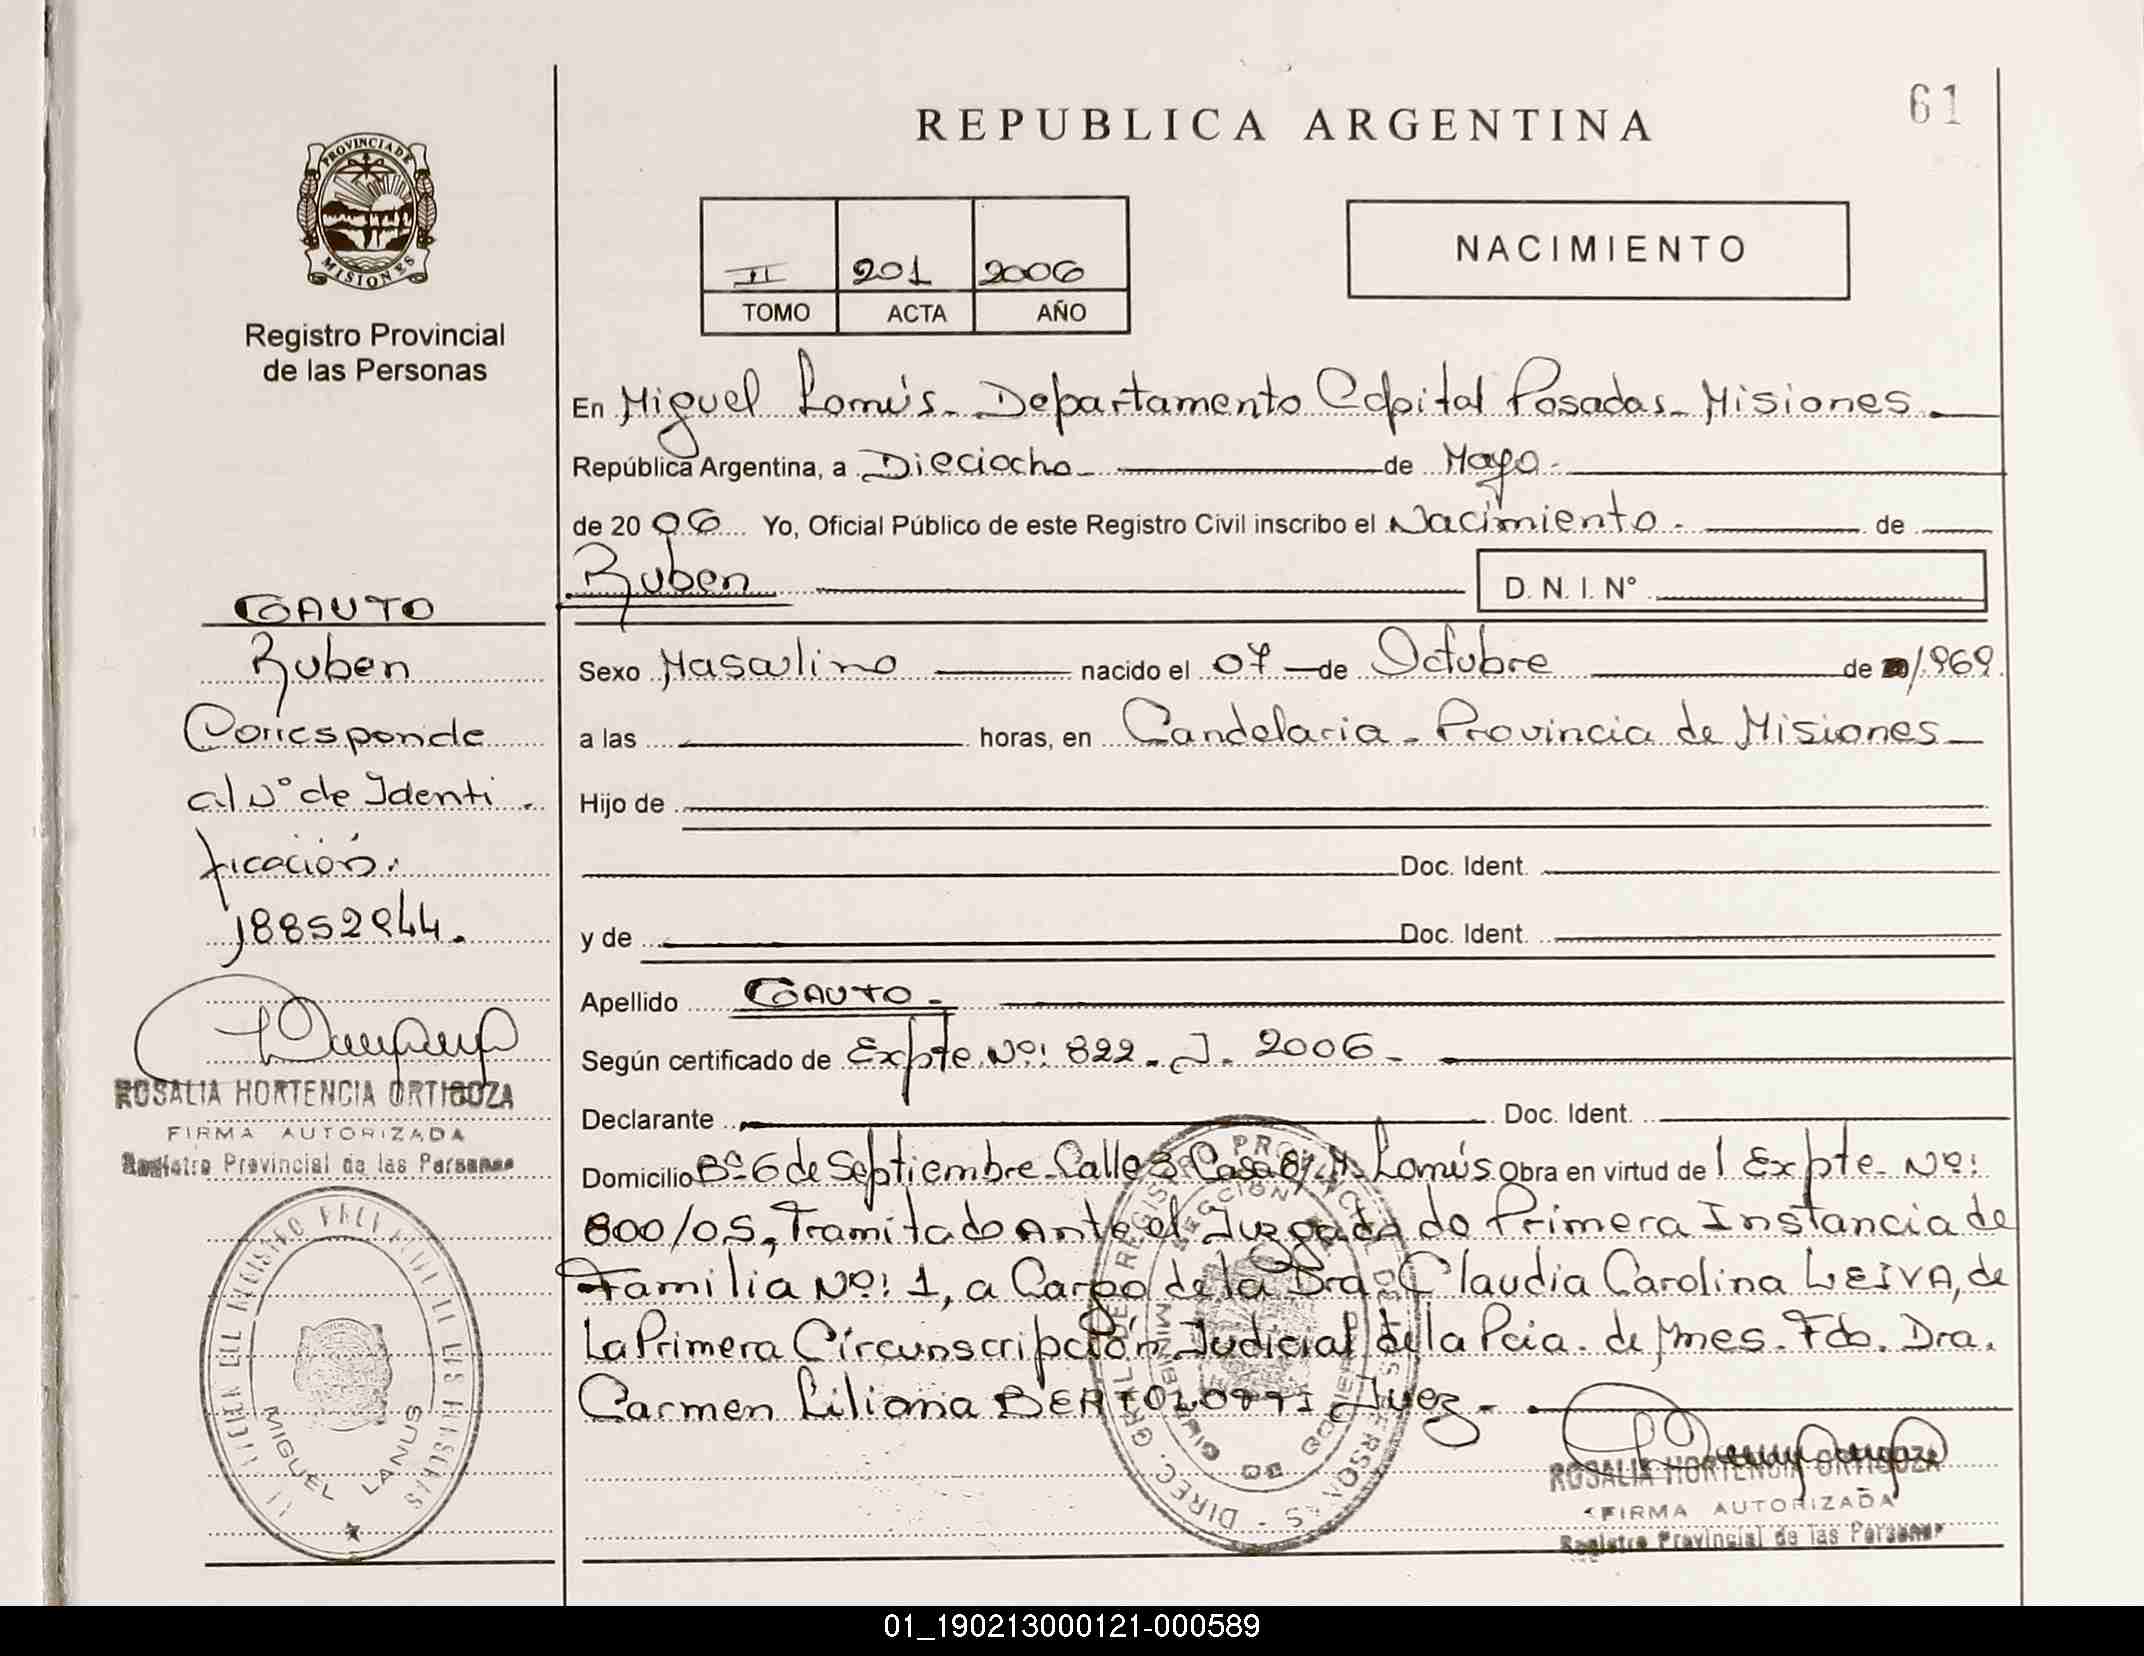 REPUBLICA ARGENTINA
61
PROVINCIA DE
MISIONES
Registro Provincial
de las Personas
II 201 2006
TOMO ACTA AÑO
NACIMIENTO
En Miguel Lanús - Departamento Capital Posadas - Misiones
República Argentina, a Dieciocho de Mayo
de 2006 Yo, Oficial Público de este Registro Civil inscribo el Nacimiento de
Ruben D. N. I. Nº
Sexo Masculino nacido el 07 de Octubre de 1969
a las horas, en Candelaria - Provincia de Misiones
Hijo de
Doc. Ident.
y de Doc. Ident.
Apellido GAUTO
Según certificado de Expte. Nº: 822 - J - 2006 -
Declarante Doc. Ident.
Domicilio Bº 6 de Septiembre - Calle 3 Casa 61 M. Lanús Obra en virtud del Expte. Nº:
800/05, Tramitado Ante el Juzgado de Primera Instancia de
Familia Nº: 1, a Cargo de la Dra. Claudia Carolina LEIVA, de
La Primera Circunscripción Judicial de la Pcia. de Mnes. Fdo. Dra.
Carmen Liliana Juez -
GAUTO
Ruben
Corresponde
al Nº de Identi
ficación:
18852944.
ROSALIA HORTENCIA ORTIGOZA
FIRMA AUTORIZADA
Registro Provincial de las Personas
MIGUEL LANUS
ROSALIA HORTENCIA ORTIGOZA
FIRMA AUTORIZADA
Registro Provincial de las Personas
01_190213000121-000589